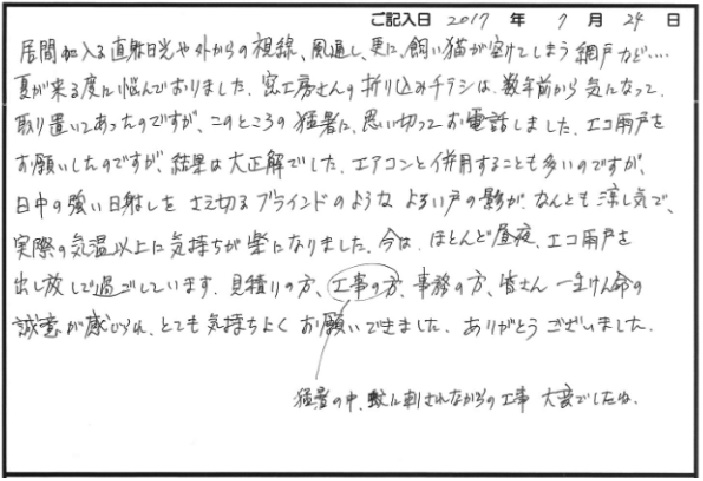 ご記入日 2017 年 7 月 24 日
居間に入る直射日光や外からの視線、風通し、更に、飼い猫が空けてしまう網戸など‥‥
夏が来る度に悩んでおりました。窓工房さんの折り込みチラシは、数年前から気になって、
取り置いてあったのですが、このところの猛暑に、思い切ってお電話しました。エコ雨戸を
お願いしたのですが、結果は大正解でした。エアコンと併用することも多いのですが、
日中の強い日射しをさえ切るブラインドのようなよろい戸の影が、なんとも涼し気で、
実際の気温以上に気持ちが楽になりました。今は、ほとんど昼夜、エコ雨戸を
出し放しで過ごしています。見積りの方、工事の方、事務の方、皆さん一生けん命の
誠意が感じられ、とても気持ちよくお願いできました。ありがとうございました。
猛暑の中、蚊に刺されながらの工事 大変でしたね。